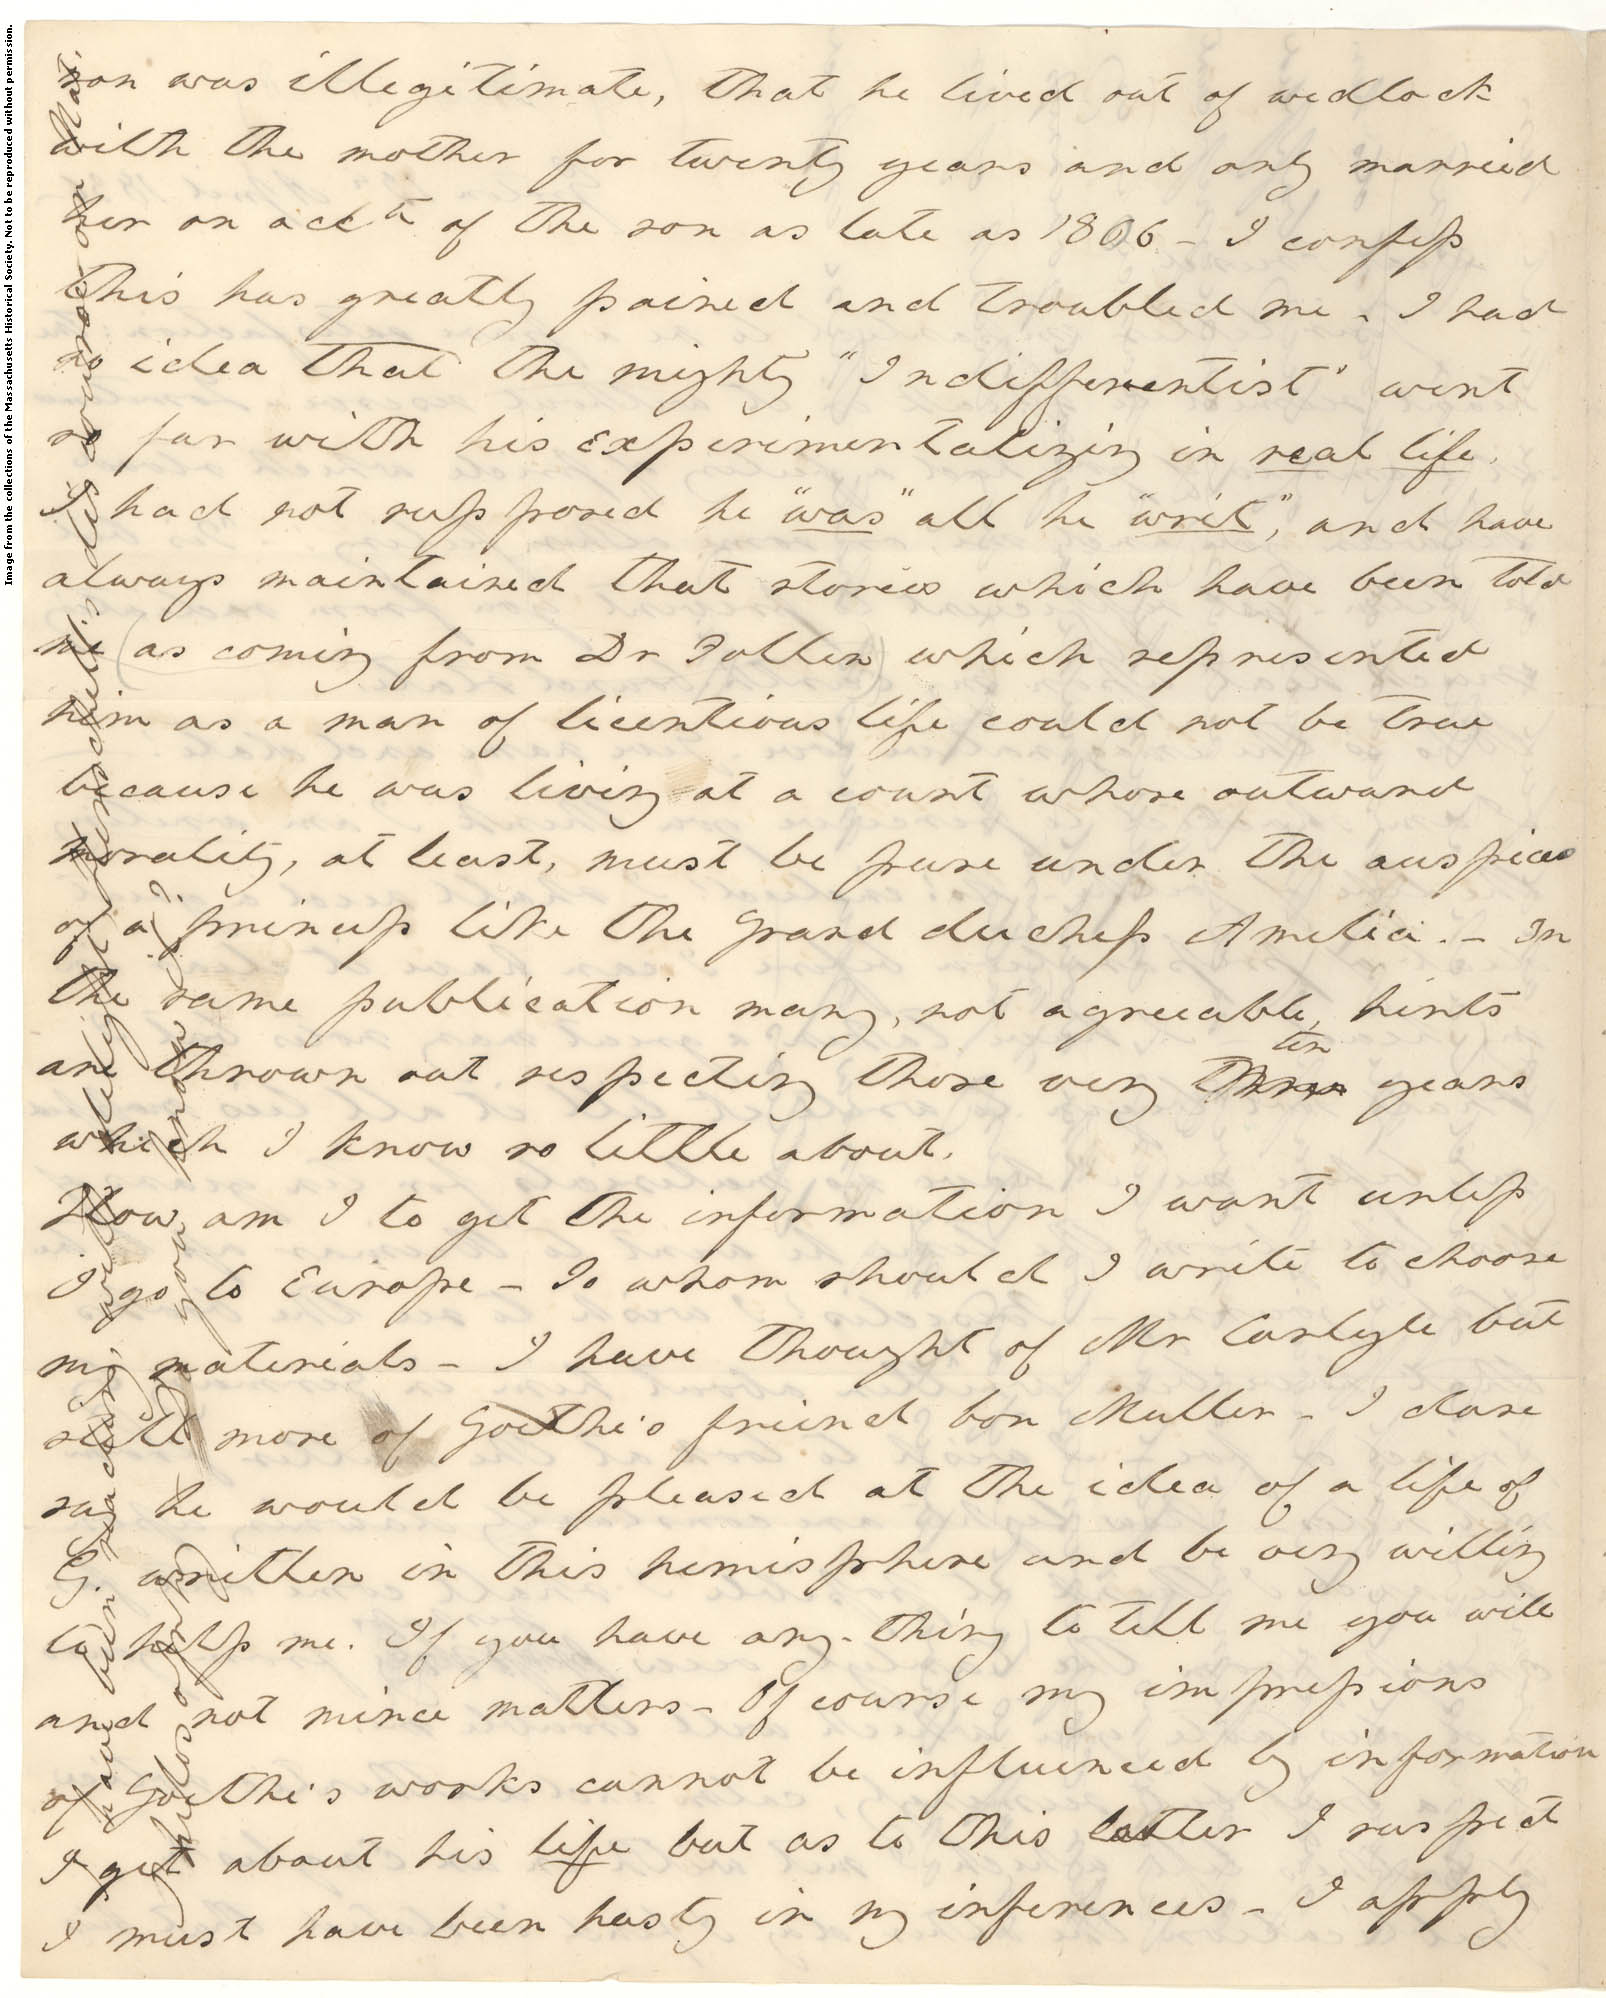 son was illegitimate, that he lived out of wedlock
with the mother for twenty years and only married
her on acct of the son as late as 1806 - I confess
this has greatly pained and troubled me - I had
no idea that the mighty "Indifferentist" went
so far with his Experimentalizing in real life.
I had not supposed he "was" all he "writ", and have
always maintained that stories which have been told
me (as coming from Dr Follen) which represented
him as a man of licentious life could not be true
because he was living at a court whose outward
morality, at least, must be pure under the auspices
of a princess like the Grand duchess Amelia. - In
the same publication many, not agreeable, hints
are thrown out respecting those very ten years
which I know so little about.
How am I to get the information I want unless
I go to Europe - To whom should I write to choose
my materials - I have thought of Mr Carlyle but
still more of Goethe's friend Von Muller - I dare
say he would be pleased at the idea of a life of
G. written in this hemisphere and be very willing
to help me. If you have any-thing to tell me you will
and not mince matters - Of course my impressions
of Goethe's works cannot be influenced by information
I get about his life but as to this latter I suspect
I must have been hasty in my inferences - I apply
I have been reading with delight Herschell's discourse on Nat.
Philosophy. Do you know it?
Image from the collections of the Massachusetts Historical Society. Not to be reproduced without permission.